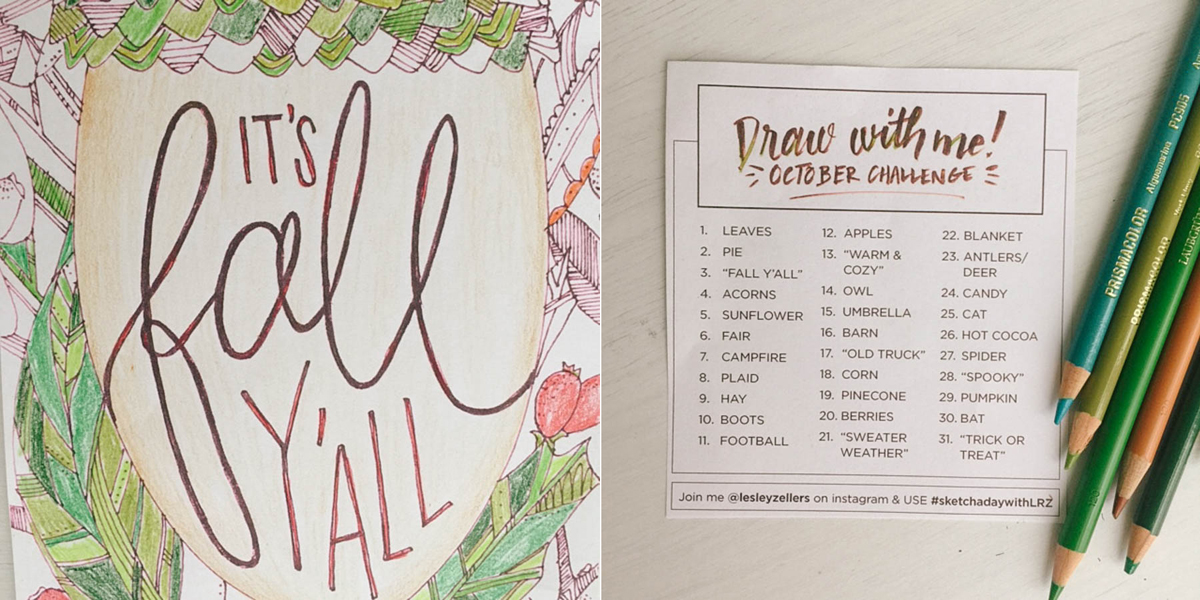 IT'S
fall
Y'ALL
Draw with me!
OCTOBER CHALLENGE
1. LEAVES
2. PIE
3. "FALL Y'ALL"
4. ACORNS
5. SUNFLOWER
6. FAIR
7. CAMPFIRE
8. PLAID
9. HAY
10. BOOTS
11. FOOTBALL
12. APPLES
13. "WARM &
COZY"
14. OWL
15. UMBRELLA
16. BARN
17. "OLD TRUCK"
18. CORN
19. PINECONE
20. BERRIES
21. "SWEATER
WEATHER"
22. BLANKET
23. ANTLERS/
DEER
24. CANDY
25. CAT
26. HOT COCOA
27. SPIDER
28. "SPOOKY"
29. PUMPKIN
30. BAT
31. "TRICK OR
TREAT"
Join me @lesleyzellers on instagram & USE #sketchadaywithLRZ
PRISMACOLOR Aquamarine PC905
PRISMACOLOR